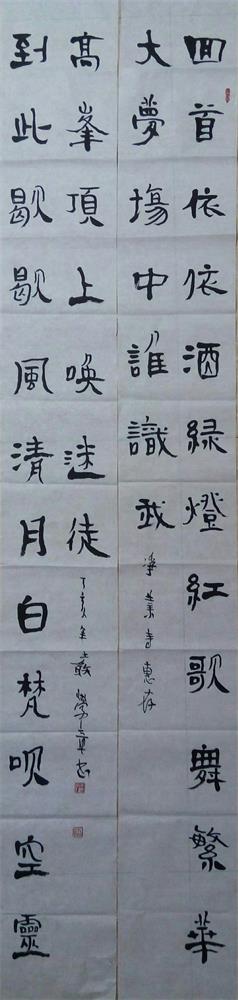 囬首依依酒緑燈紅歌舞繁華
大夢塲中誰識我
净業寺惠存
到此歇歇風清月白梵唄空靈
高峯頂上喚迷徒
丁亥年嚴學章書